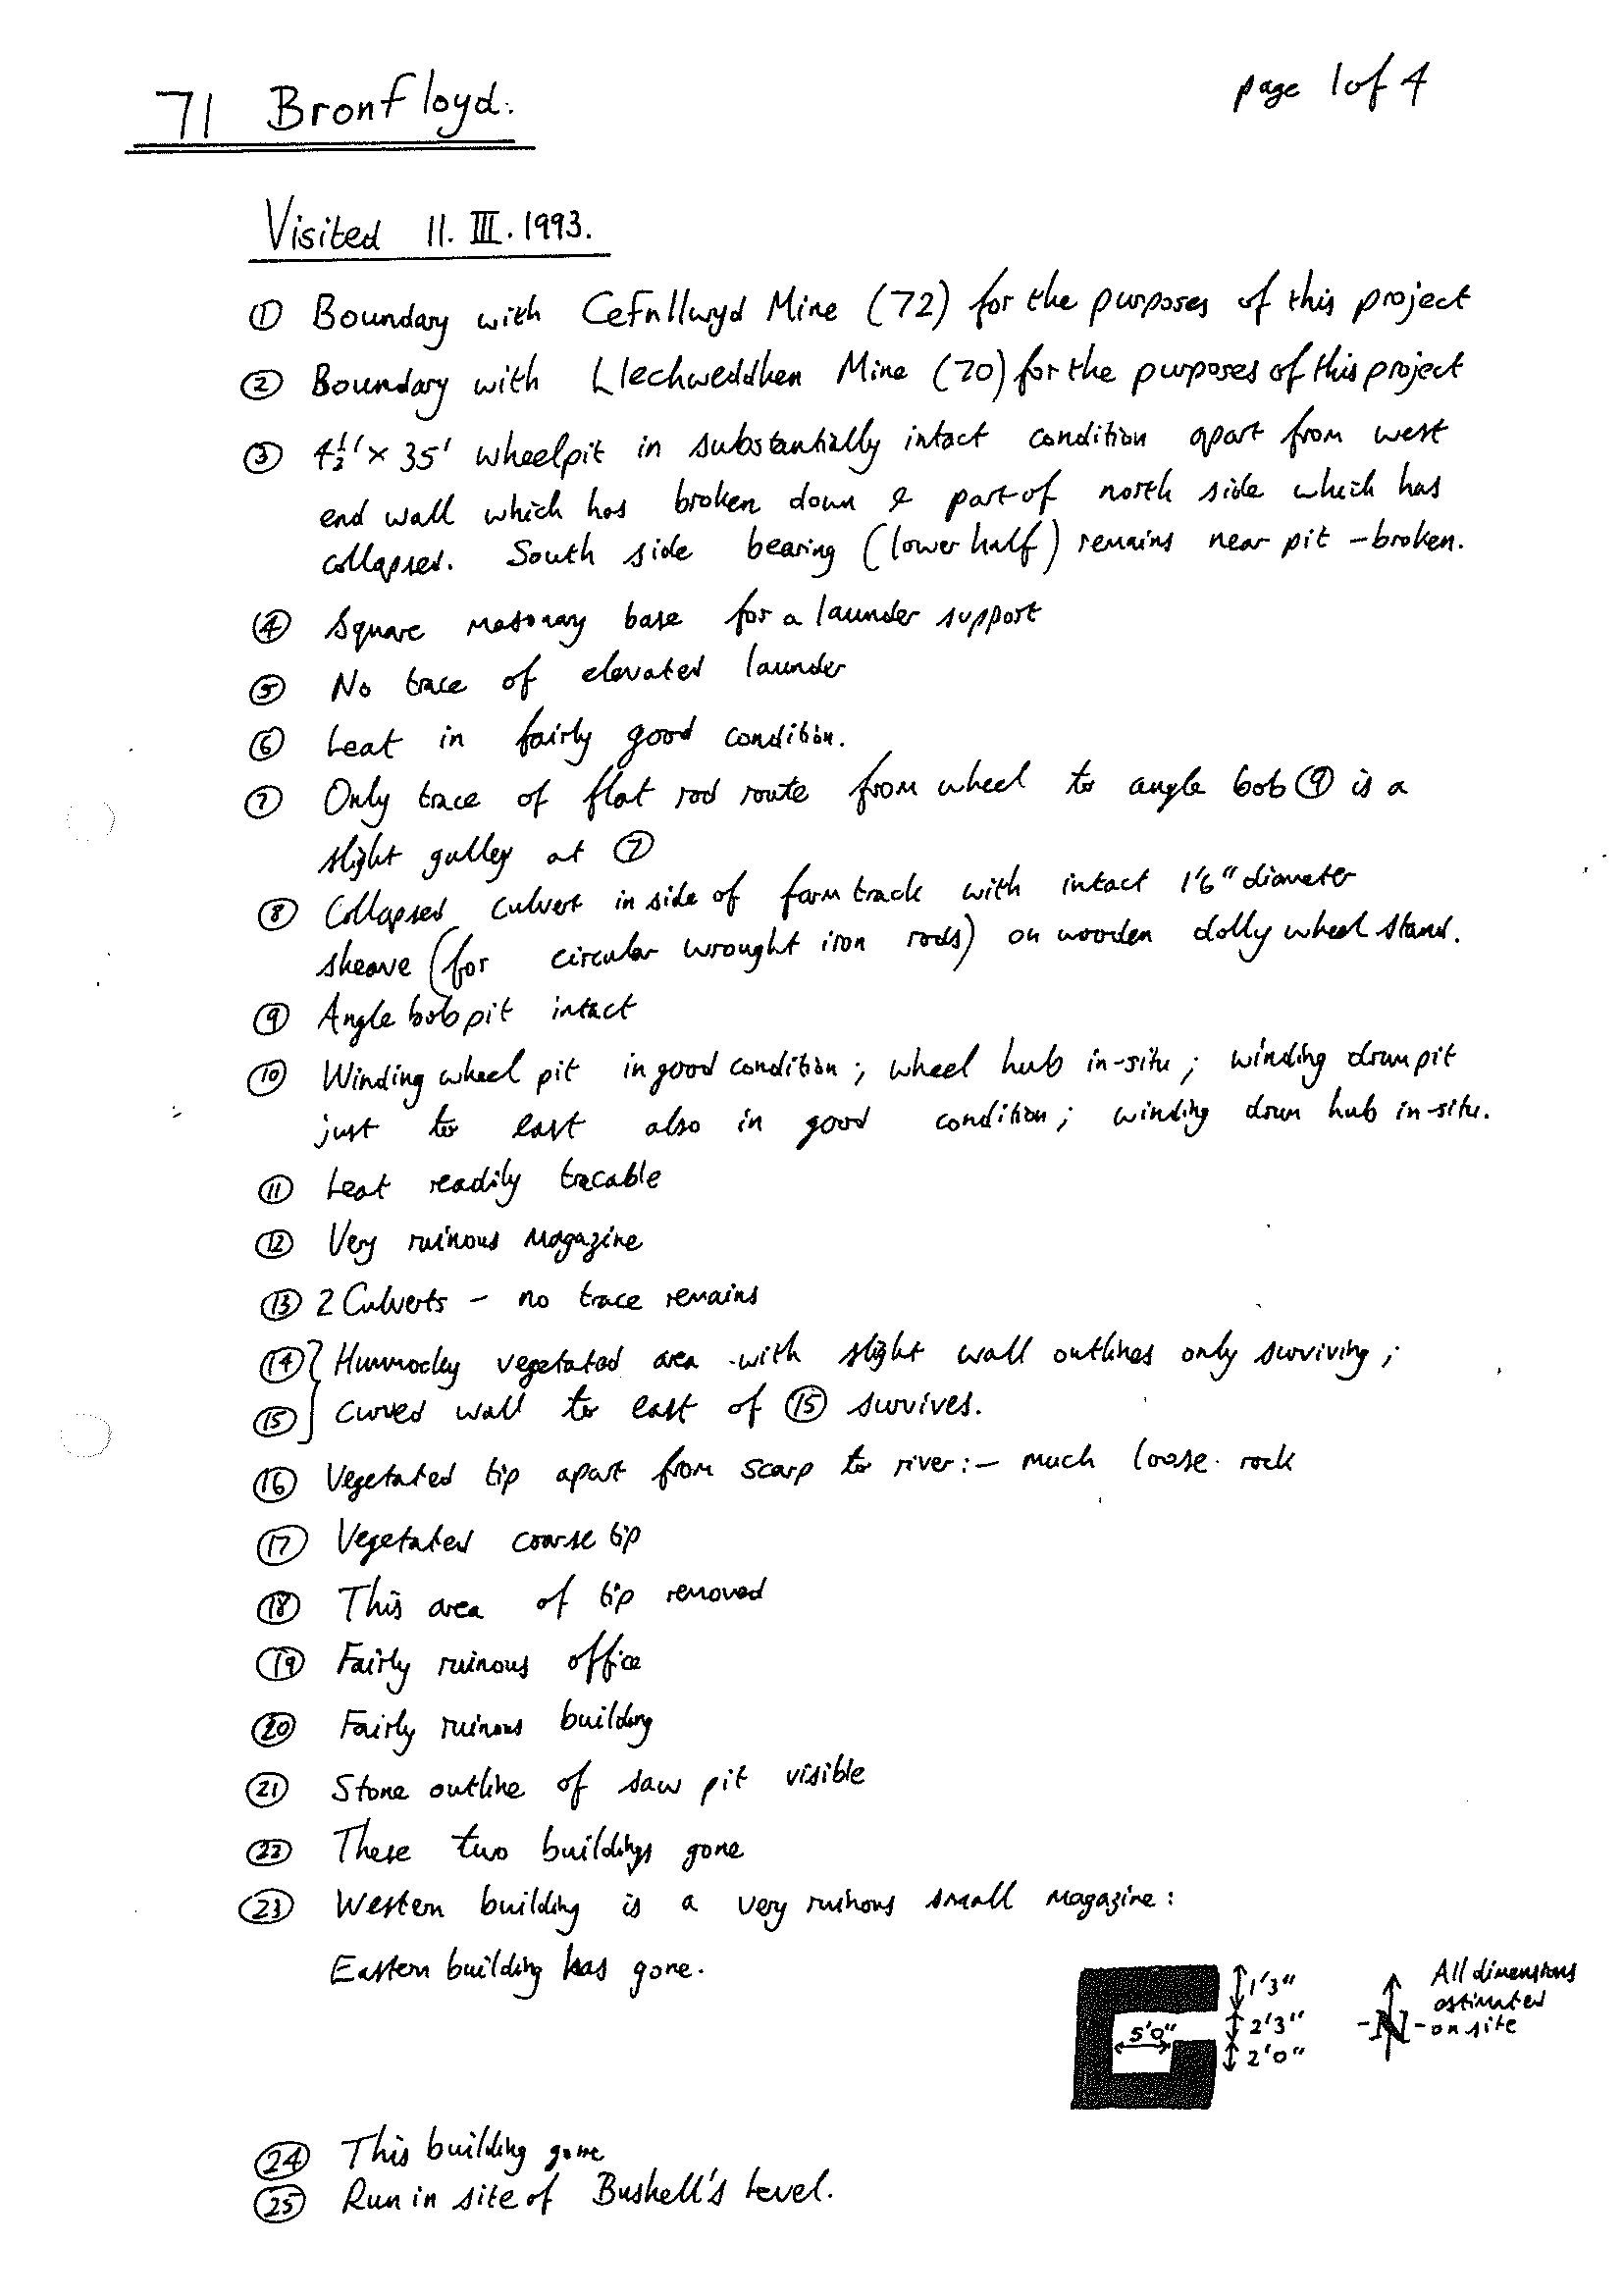 71 Bronfloyd.
page 1 of 4
Visited 11. III. 1993.
① Boundary with Cefnllwyd Mine (72) for the purposes of this project
② Boundary with Llechweddhen Mine (70) for the purposes of this project
③ 4½' × 35' wheelpit in substantially intact condition apart from west
end wall which has broken down & part of north side which has
collapsed. South side bearing (lower half) remains near pit – broken.
④ Square masonary base for a launder support
⑤ No trace of elevated launder
⑥ Leat in fairly good condition.
⑦ Only trace of flat rod route from wheel to angle bob ⑨ is a
slight gulley at ⑦
⑧ Collapsed culvert in side of farm track with intact 1'6" diameter
sheave (for circular wrought iron rods) on wooden dolly wheel stand.
⑨ Angle bob pit intact
⑩ Winding wheel pit in good condition; wheel hub in-situ; winding drum pit
just to east also in good condition; winding drum hub in-situ.
⑪ Leat readily tracable
⑫ Very ruinous magazine
⑬ 2 Culverts – no trace remains
⑭ Hummocky vegetated area with slight wall outlines only surviving;
⑮ curved wall to east of ⑮ survives.
⑯ Vegetated tip apart from scarp to river:– much loose rock
⑰ Vegetated coarse tip
⑱ This area of tip removed
⑲ Fairly ruinous office
⑳ Fairly ruinous building
㉑ Stone outline of saw pit visible
㉒ These two buildings gone
㉓ Western building is a very ruinous small magazine:
Eastern building has gone.
1'3"
2'3"
2'0"
5'0"
N
All dimensions
estimated
on site
㉔ This building gone
㉕ Run in site of Bushell's Level.